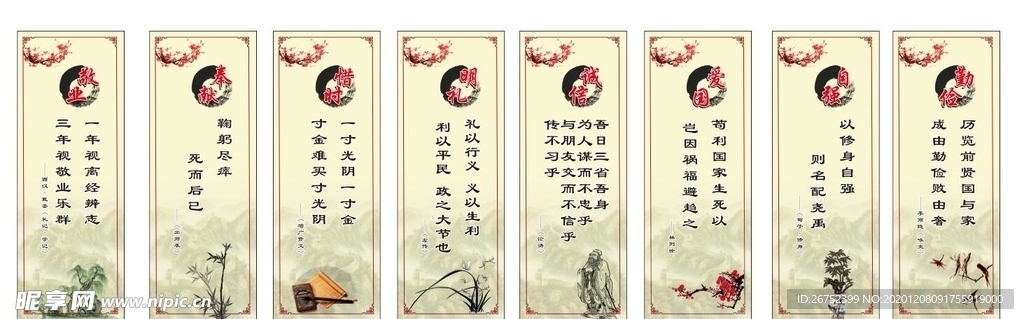 敬业
一年视离经辨志
三年视敬业乐群
——西汉·戴圣《礼记·学记》
奉献
鞠躬尽瘁
死而后已
——《出师表》
惜时
一寸光阴一寸金
寸金难买寸光阴
——《增广贤文》
明礼
礼以行义 义以生利
利以平民 政之大节也
——左传
诚信
吾日三省吾身
为人谋而不忠乎
与朋友交而不信乎
传不习乎
——《论语》
爱国
苟利国家生死以
岂因祸福避趋之
——林则徐
自强
以修身自强
则名配尧禹
——《荀子·修身》
勤俭
历览前贤国与家
成由勤俭败由奢
——李商隐《咏史》
昵享网 www.nipic.cn
ID:26752399 NO:20201208091755919000